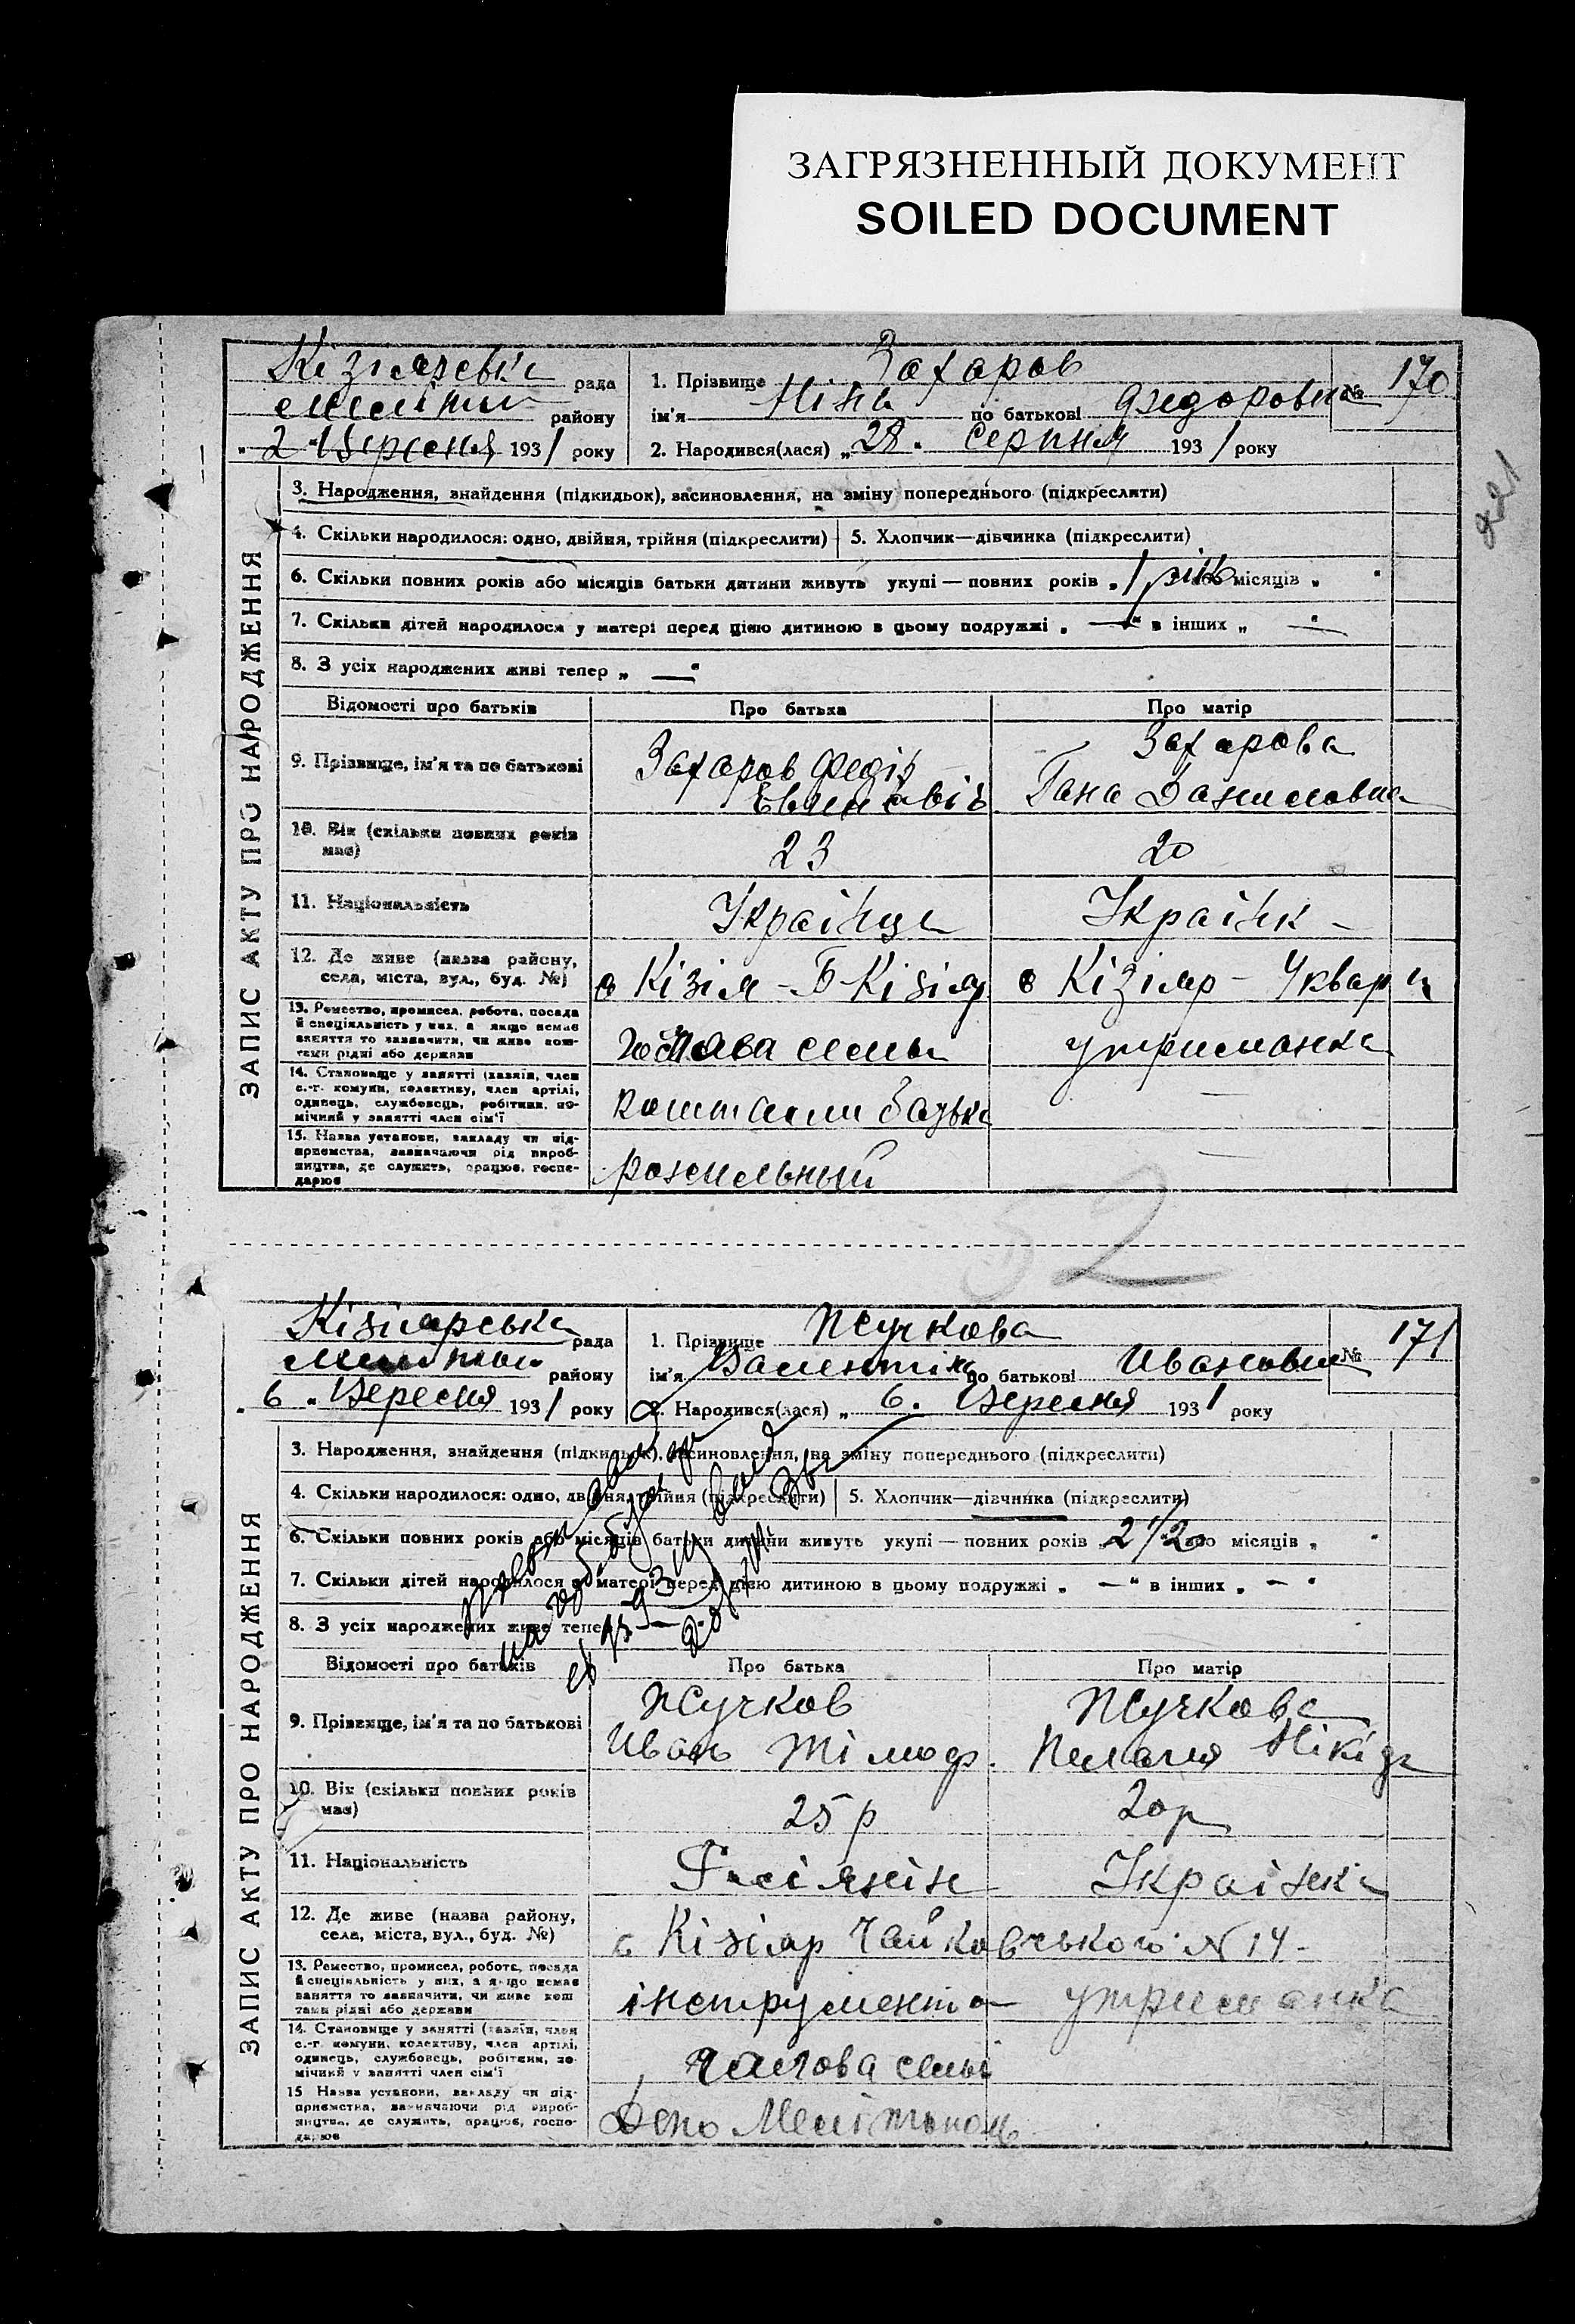 ЗАГРЯЗНЕННЫЙ ДОКУМЕНТ
SOILED DOCUMENT
рада
району
" 2 " Вересня 1931 року
1. Прізвище Захаров
ім'я Ніна по батькові Федоровна
№ 170
2. Народився(лася) „ 28 " Серпня 1931 року
ЗАПИС АКТУ ПРО НАРОДЖЕННЯ
3. Народження, знайдення (підкидьок), засиновлення, на зміну попереднього (підкреслити)
4. Скільки народилося: одно, двійня, трійня (підкреслити)
5. Хлопчик—дівчинка (підкреслити)
6. Скільки повних років або місяців батьки дитини живуть укупі — повних років „ 1 рік або місяців „ "
7. Скільки дітей народилося у матері перед цією дитиною в цьому подружжі „ — " в інших „ — "
8. З усіх народжених живі тепер „ — "
Відомості про батьків
Про батька
Про матір
9. Прізвище, ім'я та по батькові
Захаров Федір
Захарова
Гана Даниловна
10. Вік (скільки повних років має)
23
20
11. Національність
Українць
Українк
12. Де живе (назва району,
села, міста, вул., буд. №)
с Кізіяр
13. Ремество, промисел, робота, посада
й спеціяльність у них, а якщо немає
заняття то зазначити, чи живе кош-
тами рідні або держави
голова семьи
утриманка
14. Становище у занятті (хазяїн, член
с.-г. комуни, колективу, член артілі,
одинець, службовець, робітник, по-
мічний у занятті член сім'ї
коштами батька
15. Назва установи, закладу чи під-
приємства, зазначаючи рід вироб-
ництва, де служить, працює, госпо-
дарює
221
52
Кізіярська рада
району
" 6 " Вересня 1931 року
1. Прізвище Жучкова
ім'я Валентіна по батькові Ивановна
№ 171
2. Народився(лася) „ 6 " Вересня 1931 року
ЗАПИС АКТУ ПРО НАРОДЖЕННЯ
3. Народження, знайдення (підкидьок), засиновлення, на зміну попереднього (підкреслити)
4. Скільки народилося: одно, двійня, трійня (підкреслити)
5. Хлопчик—дівчинка (підкреслити)
6. Скільки повних років або місяців батьки дитини живуть укупі — повних років 2 1/2 або місяців „ "
7. Скільки дітей народилося у матері перед цією дитиною в цьому подружжі „ — " в інших „ — "
8. З усіх народжених живі тепер
Відомості про батьків
Про батька
Про матір
9. Прізвище, ім'я та по батькові
Жучков
Иван Тімоф.
Жучкова
Пелагия Нікіф
10. Вік (скільки повних років
має)
25 р
20 р
11. Національність
Росіянін
Українка
12. Де живе (назва району,
села, міста, вул., буд. №)
с Кізіяр Чайковського N 14
13. Ремество, промисел, робота, посада
й спеціяльність у них, а якщо немає
заняття то зазначити, чи живе кош
тами рідні або держави
утриманка
14. Становище у занятті (хазяїн, член
с.-г. комуни, колективу, член артілі,
одинець, службовець, робітник, по-
мічний у занятті член сім'ї
голова семьи
15 Назва установи, закладу чи під-
приємства, зазначаючи рід вироб-
ництва, де служить, працює, госпо-
дарює
Депо Мелітополь